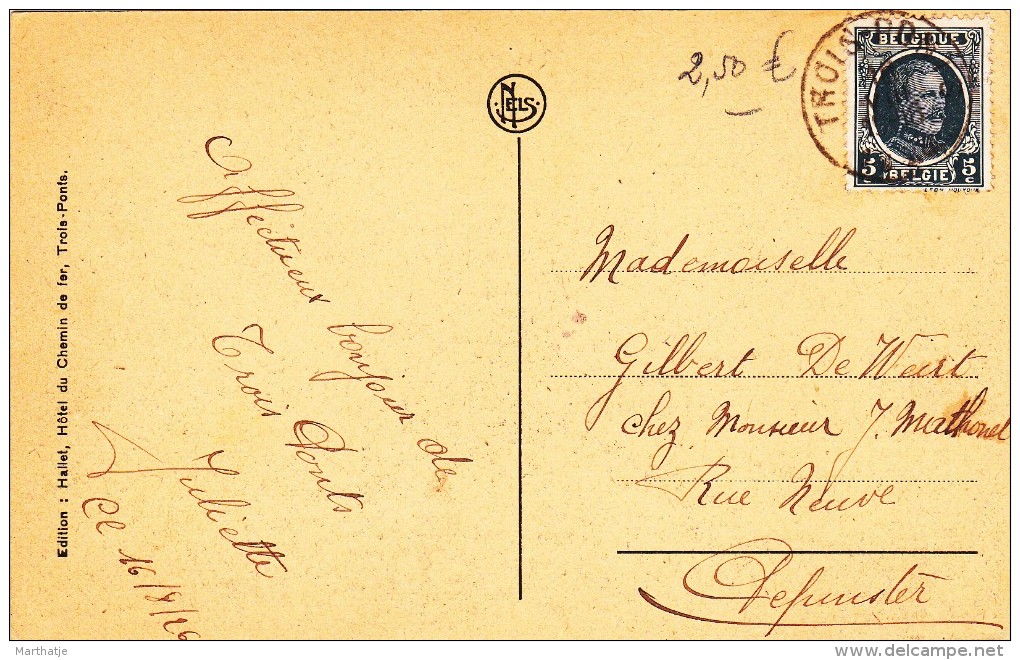 Edition : Hallet, Hôtel du Chemin de fer, Trois-Ponts.
Affectueux bonjour de
Trois Ponts
Juliette
le 16/8/26
NELS
2,50 €
TROIS-PON
BELGIQUE
5 BELGIË 5
c
Mademoiselle
Gilbert De Weert
chez Monsieur J. Mathonet
Rue Neuve
Pepinster
Marthatje
www.delcampe.net